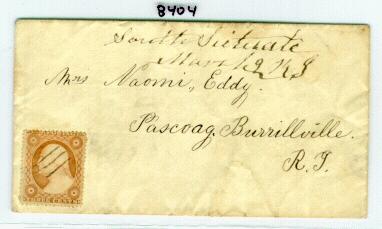 8404
South Scituate
Mar 19
Mrs Naomi, Eddy.
Pascoag, Burrillville.
R. I.
THREE CENTS